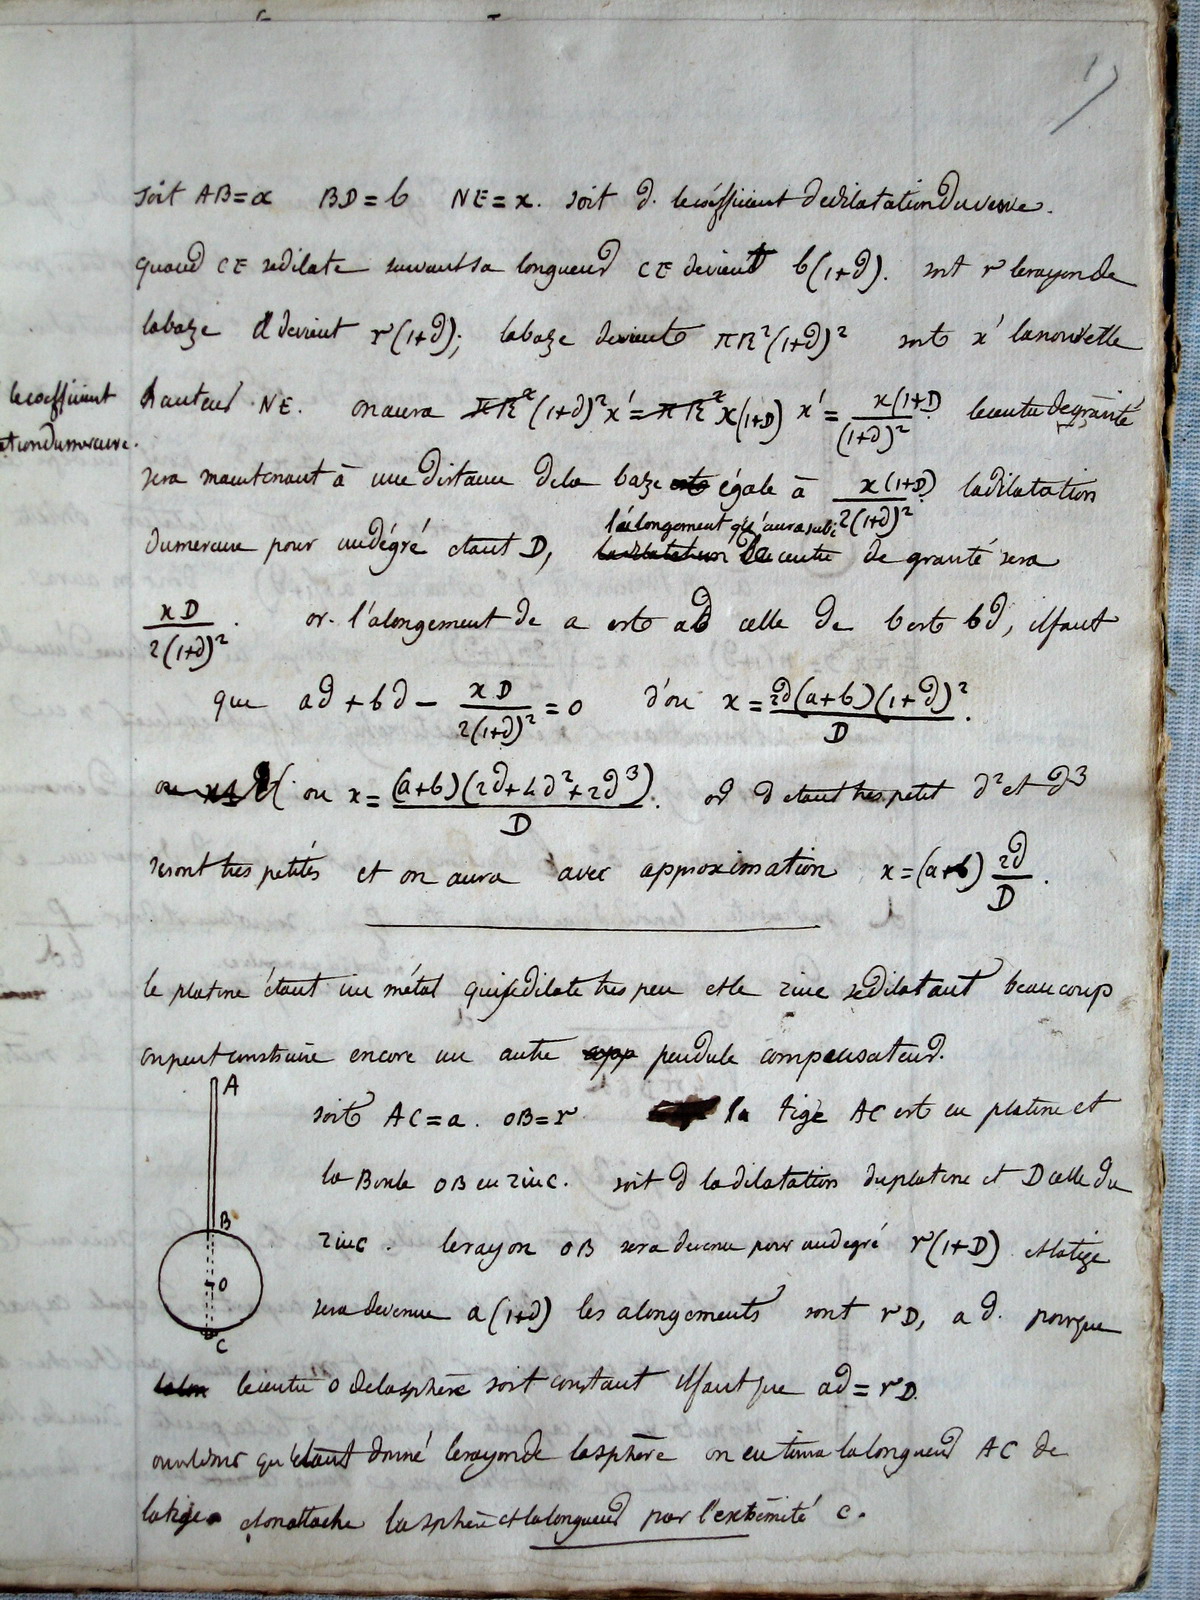 17
soit AB=a BD=b NE=x. soit d. le coéfficient de dilatation du verre.
quand CE se dilate suivant sa longueur CE devient b(1+d). soit r le rayon de
la baze il devient r(1+d); la baze devient πR²(1+d)² soit x' la nouvelle
le coefficient
ation du mercure.
hauteur NE. on aura πR²(1+d)²x'=πR²x(1+D) x'= x(1+D)/(1+d)² le centre de gravité
sera maintenant à une distance de la baze égale à x(1+D)/2(1+d)² la dilatation
l'alongement qu'aura subi
du mercure pour un dégré étant D, la dilatation le centre de gravité sera
xD/2(1+d)². or l'alongement de a est ad celle de b est bd, il faut
que ad+bd- xD/2(1+d)² =0 d'ou x= 2d(a+b)(1+d)²/D.
ou x= (a+b)(2d+4d²+2d³)/D. or d étant tres petit d² et d³
seront tres petités et on aura avec approximation x=(a+b) 2d/D.
le platine étant un métal qui se dilate tres peu et le zinc se dilatant beaucoup
on peut construire encore un autre app pendule compensateur.
A
soit AC=a. OB=r la tige AC est en platine et
la Boule OB en zinc. soit d la dilatation du platine et D celle du
B
zinc. le rayon OB sera devenu pour un degré r(1+D) et la tige
O
sera devenue a(1+d) les alongements sont rD, ad. pour que
C
le centre O de la sphère soit constant il faut que ad=rD.
on voit donc qu'étant donné le rayon de la sphère on en tirera la longueur AC de
la tige et on attache la sphère et la longueur par l'extrémité C.